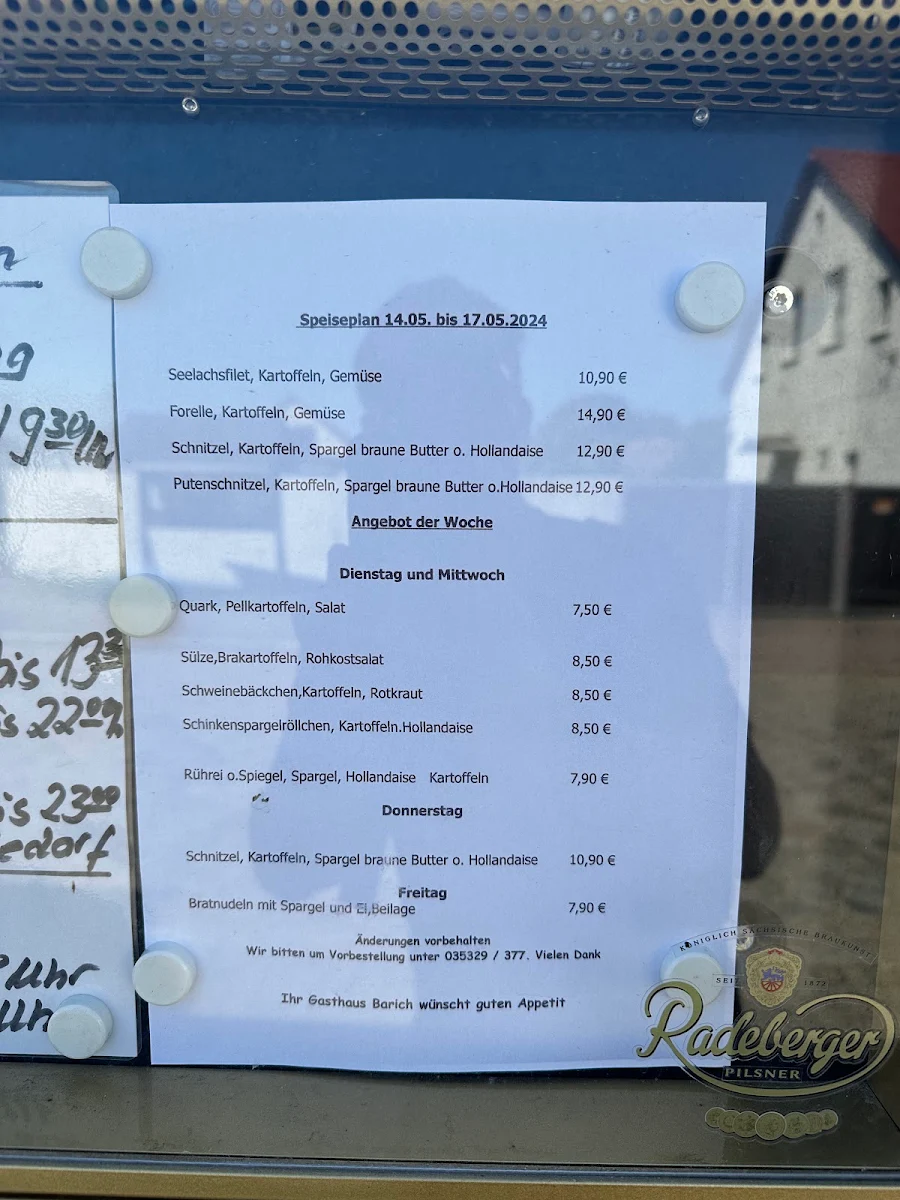 n
g
19³⁰ Uh
bis 13³
is 22⁰⁰ Uh
is 23⁰⁰
edarf
Uhr
Uh
Speiseplan 14.05. bis 17.05.2024
Seelachsfilet, Kartoffeln, Gemüse 10,90 €
Forelle, Kartoffeln, Gemüse 14,90 €
Schnitzel, Kartoffeln, Spargel braune Butter o. Hollandaise 12,90 €
Putenschnitzel, Kartoffeln, Spargel braune Butter o.Hollandaise 12,90 €
Angebot der Woche
Dienstag und Mittwoch
Quark, Pellkartoffeln, Salat 7,50 €
Sülze,Brakartoffeln, Rohkostsalat 8,50 €
Schweinebäckchen,Kartoffeln, Rotkraut 8,50 €
Schinkenspargelröllchen, Kartoffeln.Hollandaise 8,50 €
Rührei o.Spiegel, Spargel, Hollandaise Kartoffeln 7,90 €
Donnerstag
Schnitzel, Kartoffeln, Spargel braune Butter o. Hollandaise 10,90 €
Freitag
Bratnudeln mit Spargel und Ei,Beilage 7,90 €
Änderungen vorbehalten
Wir bitten um Vorbestellung unter 035329 / 377. Vielen Dank
Ihr Gasthaus Barich wünscht guten Appetit
KÖNIGLICH SÄCHSISCHE BRAUKUNST
SEIT 1872
Radeberger
PILSNER